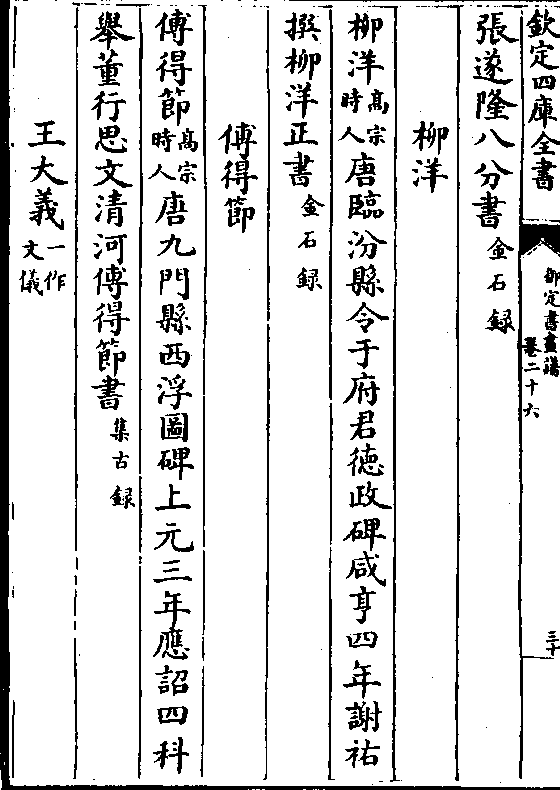 欽定四庫全書
御定書畫譜
卷二十六
三十
張遂隆八分書金石録
柳洋
柳洋高宗時人唐臨汾縣令于府君德政碑咸亨四年謝祐
撰柳洋正書金石録
傅得節
傅得節高宗時人唐九門縣西浮圖碑上元三年應詔四科
舉董行思文清河傅得節書集古録
王大義一作文儀